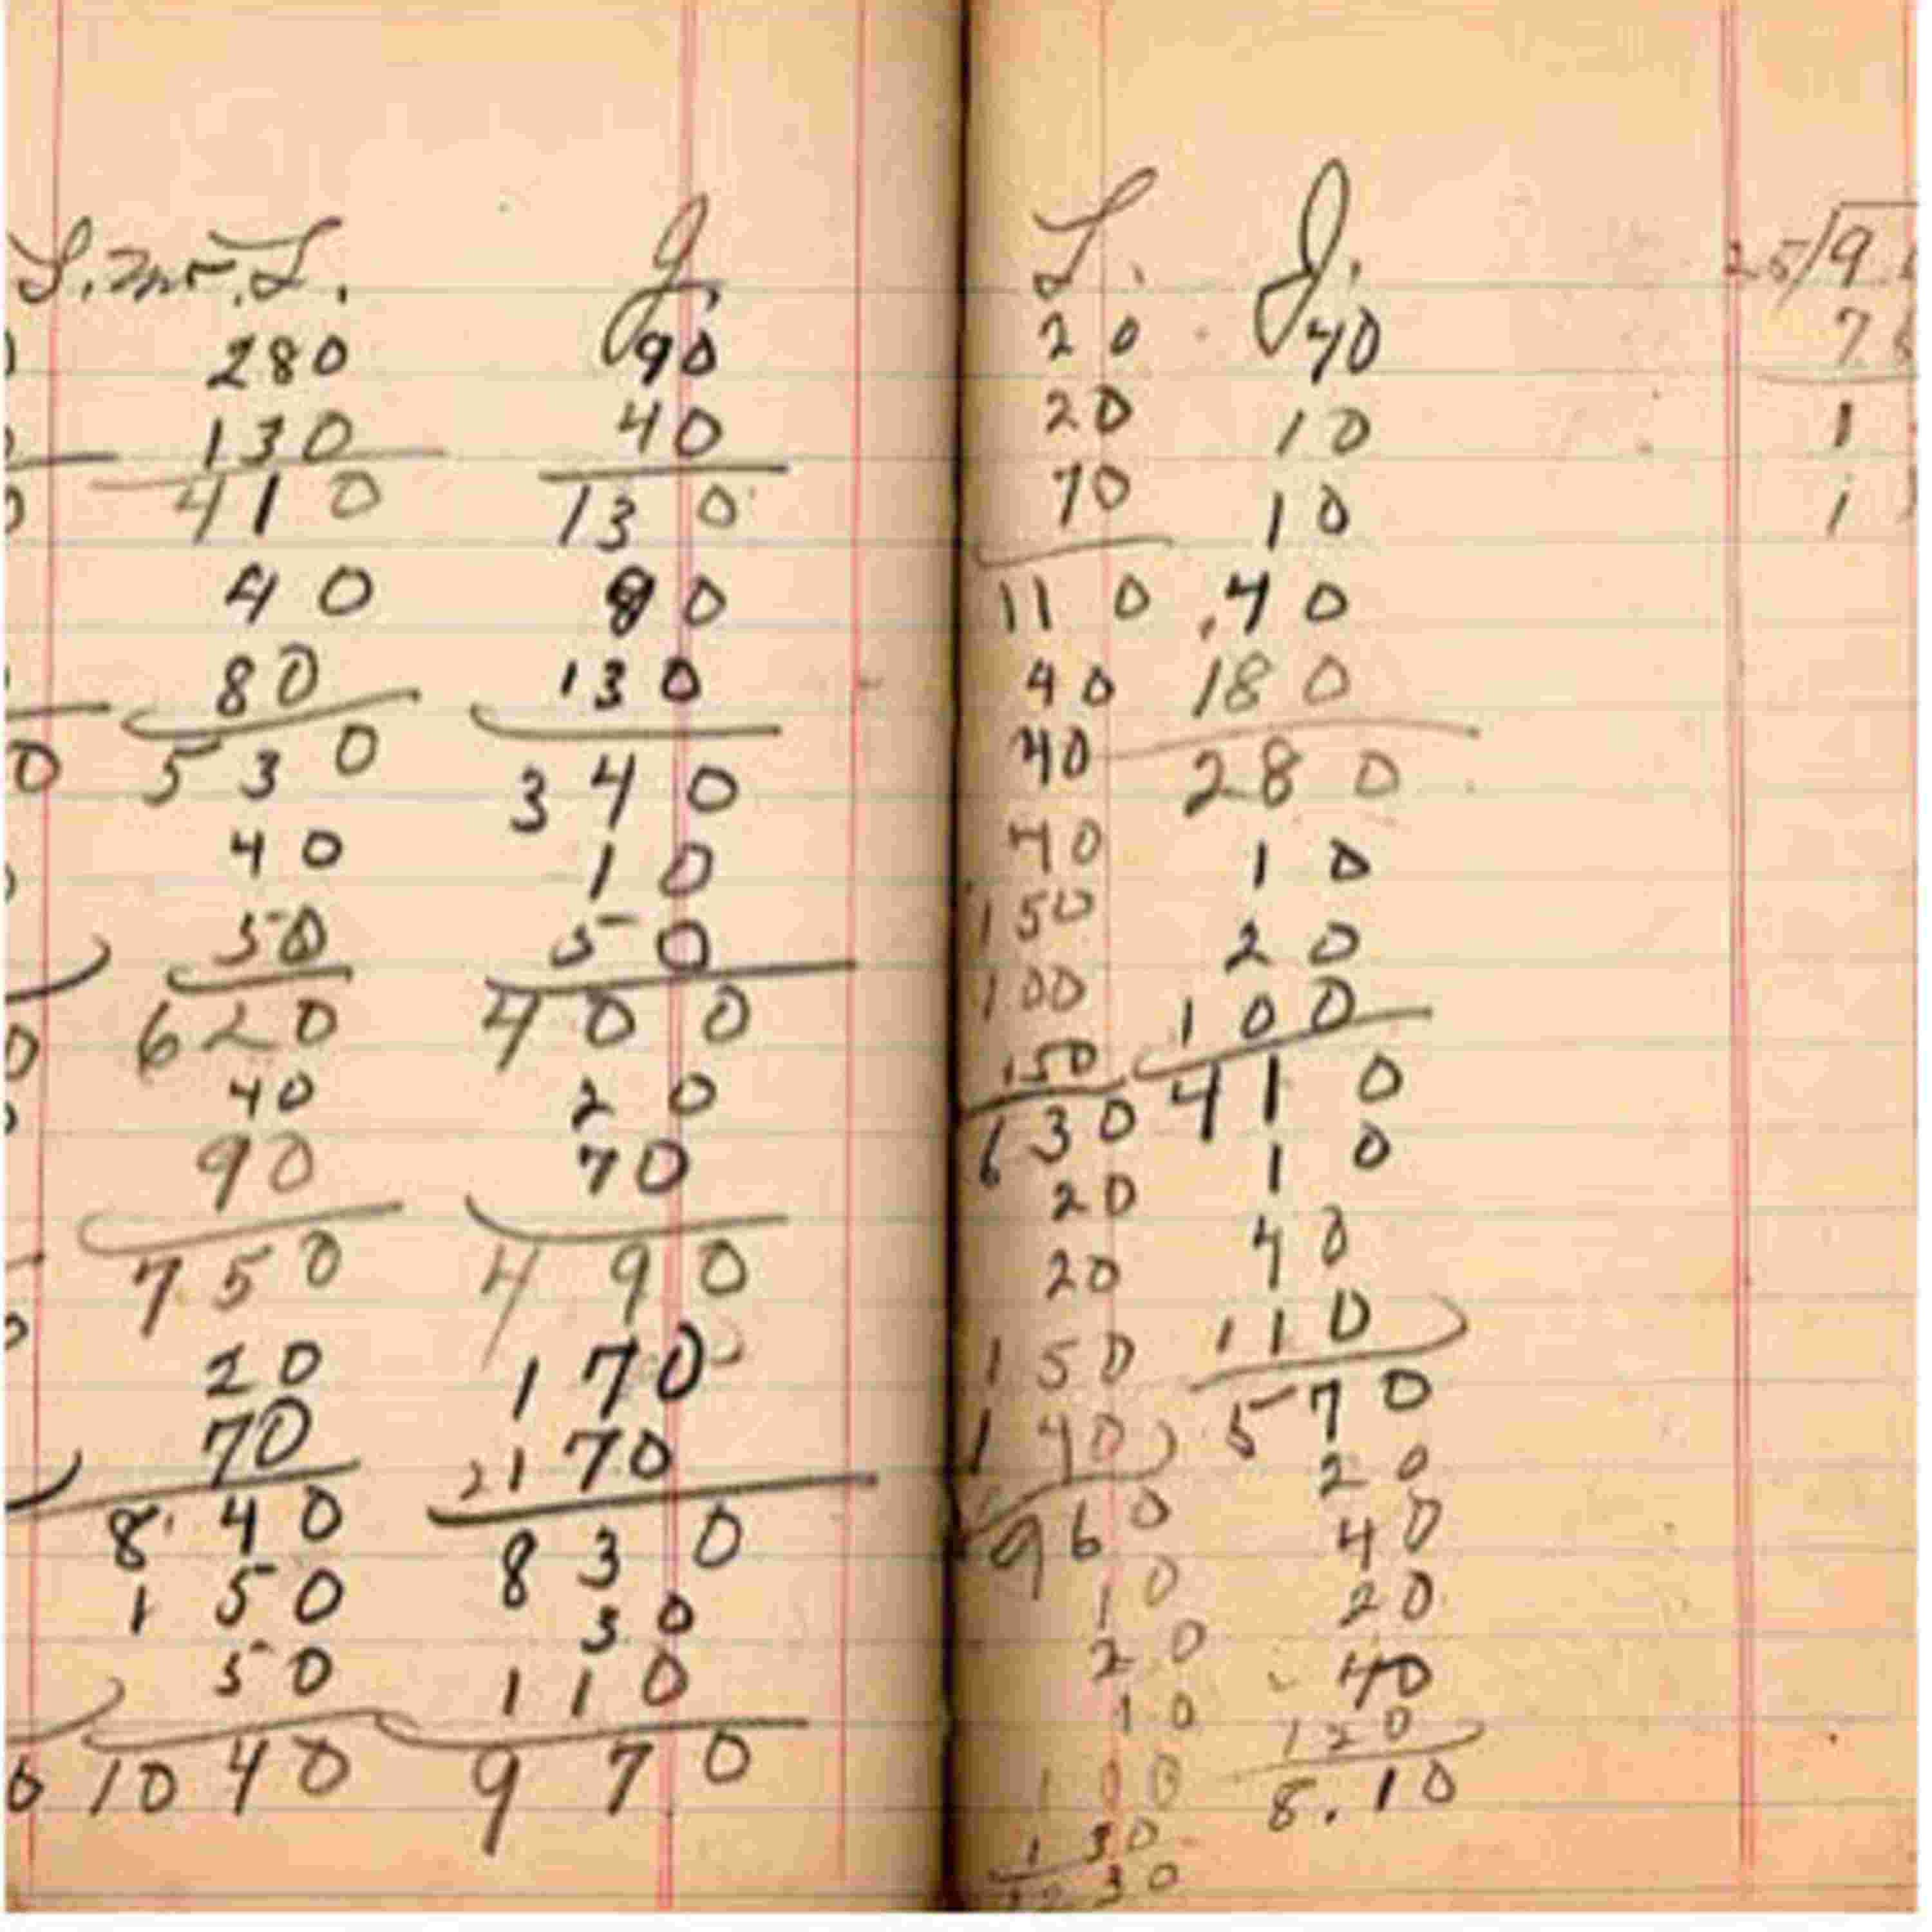 L.
280
130
410
40
80
530
40
50
620
40
90
750
20
70
840
150
50
1040
J.
90
40
130
80
130
340
10
50
400
20
70
490
170
170
830
30
110
970
L.
20
20
70
110
40
40
40
150
100
150
630
20
20
150
140
960
10
20
10
100
130
J.
40
10
10
40
180
280
10
20
100
410
10
40
110
570
20
40
20
40
120
8.10
25/9
7
1
1